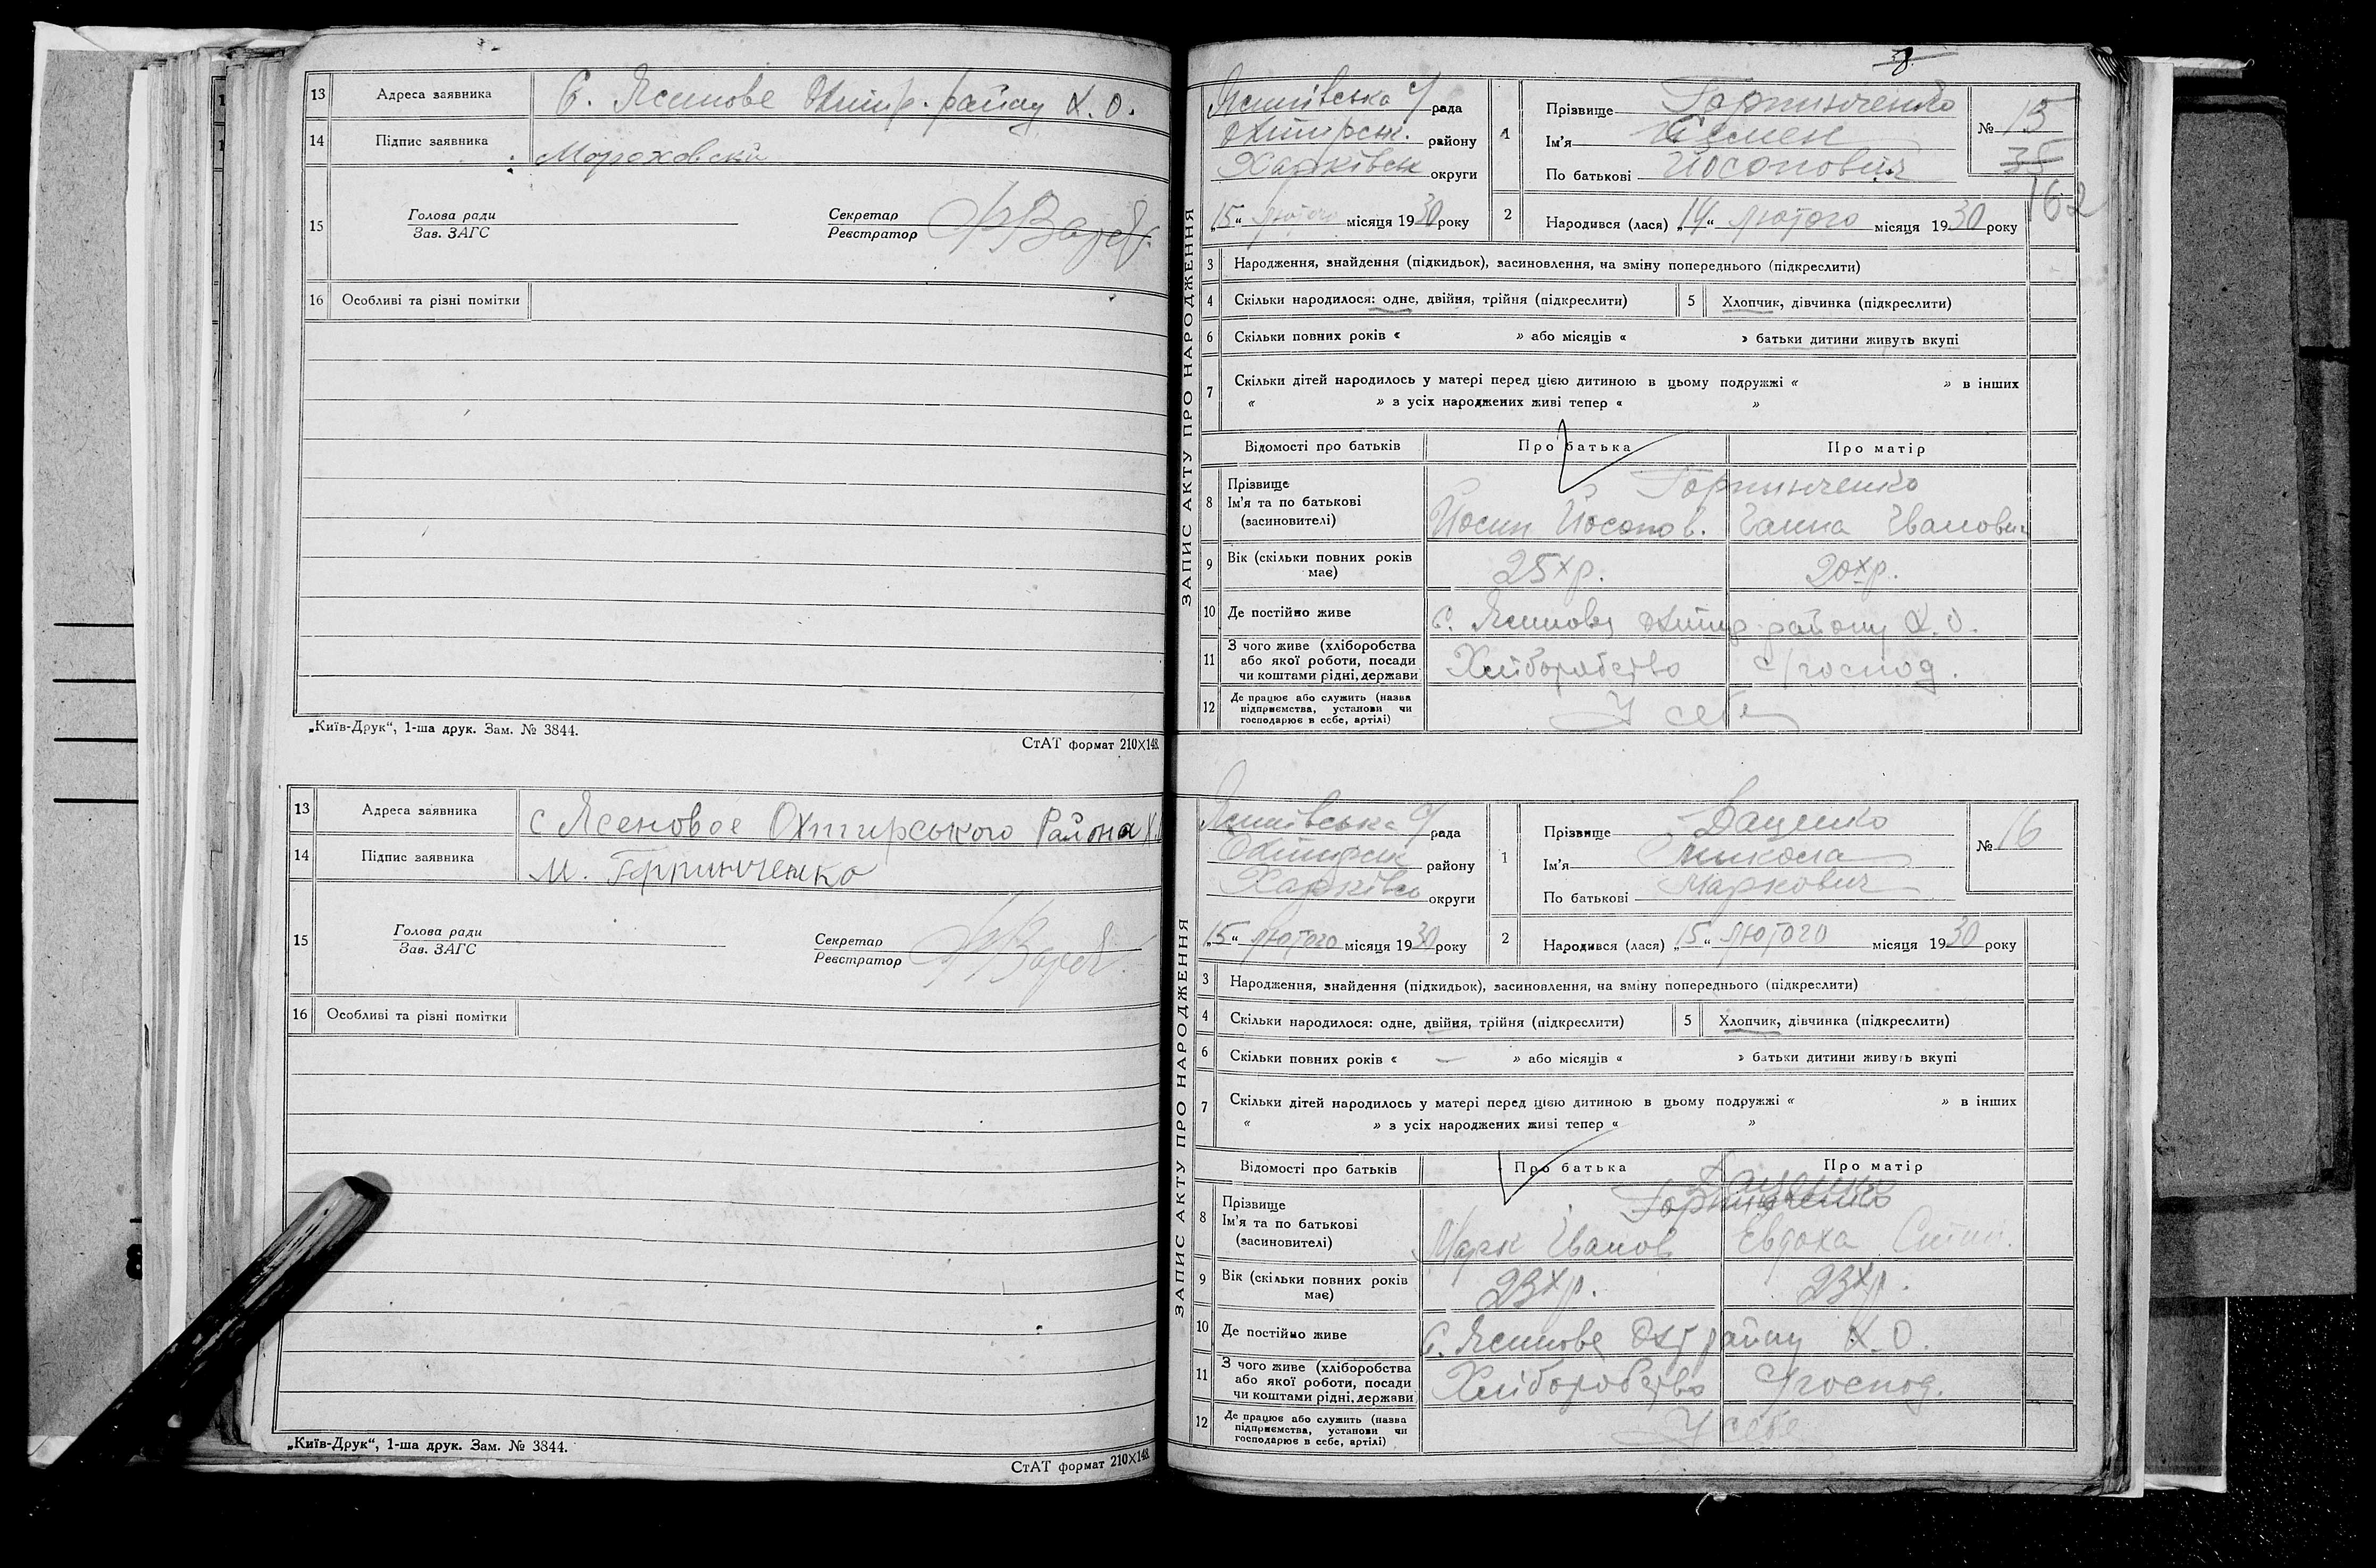 13 Адреса заявника С. Ясенове Охтир. району Х. О.
14 Підпис заявника Мороховский
15 Голова ради Секретар
Зав. ЗАГС Реєстратор
16 Особливі та різні помітки
„Київ-Друк“, 1-ша друк. Зам. № 3844.
СтАТ формат 210×148
13 Адреса заявника с Ясеновое Охтирського Района Х.
14 Підпис заявника М. Горпинченко
15 Голова ради Секретар
Зав. ЗАГС Реєстратор
16 Особливі та різні помітки
„Київ-Друк“, 1-ша друк. Зам. № 3844.
СтАТ формат 210×148
ЗАПИС АКТУ ПРО НАРОДЖЕННЯ
Ясенівська с/ рада 1 Прізвище Горпинченко № 15
Охтирськ. району Ім'я Семен 35
Харківськ округи По батькові Йосипович 162
„15“ лютого місяця 1930 року 2 Народився (лася) „14“ лютого місяця 1930 року
3 Народження, знайдення (підкидьок), засиновлення, на зміну попереднього (підкреслити)
4 Скільки народилося: одне, двійня, трійня (підкреслити) 5 Хлопчик, дівчинка (підкреслити)
6 Скільки повних років « » або місяців « » батьки дитини живуть вкупі
7 Скільки дітей народилось у матері перед цією дитиною в цьому подружжі « » в інших
« » з усіх народжених живі тепер « »
Відомості про батьків Про батька Про матір
8 Прізвище Горпинченко
Ім'я та по батькові
(засиновителі) Йосип Йосипов. Ганна Іванович
9 Вік (скільки повних років має) 25 х р. 20 х р.
10 Де постійно живе С. Ясенове Охтир району Х. О.
11 З чого живе (хліборобства
або якої роботи, посади Хліборобство с/господ.
чи коштами рідні, держави
12 Де працює або служить (назва
підприємства, установи чи У себе
господарює в себе, артілі)
ЗАПИС АКТУ ПРО НАРОДЖЕННЯ
Ясенівська с/ рада 1 Прізвище Даценко № 16
Охтирськ району Ім'я Микола
Харківсь округи По батькові Маркович
„15“ лютого місяця 1930 року 2 Народився (лася) „15“ лютого місяця 1930 року
3 Народження, знайдення (підкидьок), засиновлення, на зміну попереднього (підкреслити)
4 Скільки народилося: одне, двійня, трійня (підкреслити) 5 Хлопчик, дівчинка (підкреслити)
6 Скільки повних років « — » або місяців « » батьки дитини живуть вкупі
7 Скільки дітей народилось у матері перед цією дитиною в цьому подружжі « » в інших
« » з усіх народжених живі тепер « »
Відомості про батьків Про батька Про матір
Даценко
8 Прізвище Горпинченко
Ім'я та по батькові
(засиновителі) Марк Іванов Евдоха
9 Вік (скільки повних років має) 23 х р. 23 х р.
10 Де постійно живе С. Ясенове Охт району Х. О.
11 З чого живе (хліборобства
або якої роботи, посади Хліборобство с/господ.
чи коштами рідні, держави
12 Де працює або служить (назва
підприємства, установи чи У себе
господарює в себе, артілі)